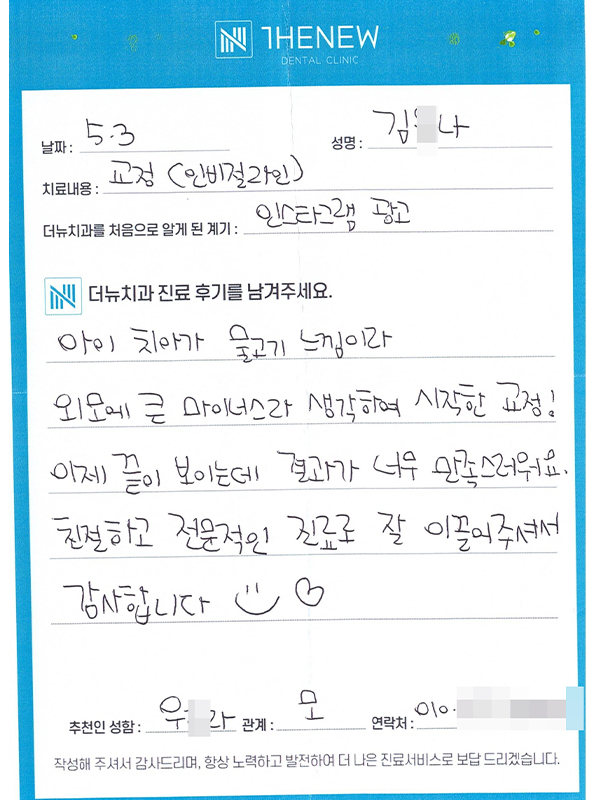 THENEW
DENTAL CLINIC
날짜 : 5.3 성명 : 김 나
치료내용 : 교정 (인비절라인)
더뉴치과를 처음으로 알게 된 계기 : 인스타그램 광고
더뉴치과 진료 후기를 남겨주세요.
아이 치아가 물고기 느낌이라
외모에 큰 마이너스라 생각하여 시작한 교정!
이제 끝이 보이는데 결과가 너무 만족스러워요.
친절하고 전문적인 진료로 잘 이끌어주셔서
감사합니다
추천인 성함 : 우 라 관계 : 모 연락처 : 010.
작성해 주셔서 감사드리며, 항상 노력하고 발전하여 더 나은 진료서비스로 보답 드리겠습니다.